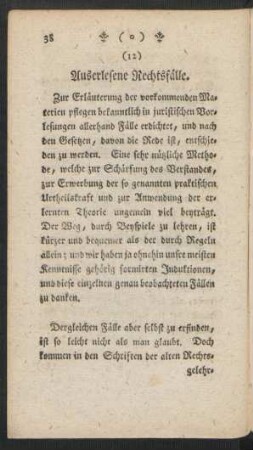 38 ❧ ( o ) ❧
(12)
Auserlesene Rechtsfälle.
Zur Erläuterung der vorkommenden Ma-
terien pflegen bekanntlich in juristischen Vor-
lesungen allerhand Fälle erdichtet, und nach
den Gesetzen, davon die Rede ist, entschie-
den zu werden. Eine sehr nützliche Metho-
de, welche zur Schärfung des Verstandes,
zur Erwerbung der so genannten praktischen
Urtheilskraft und zur Anwendung der er-
lernten Theorie ungemein viel beyträgt.
Der Weg, durch Beyspiele zu lehren, ist
kürzer und bequemer als der durch Regeln
allein; und wir haben ja ohnehin unser meisten
Kenntnisse gehörig formirten Induktionen,
und diese einzelnen genau beobachteten Fällen
zu danken.
Dergleichen Fälle aber selbst zu erfinden,
ist so leicht nicht als man glaubt. Doch
kommen in den Schriften der alten Rechts-
gelehr-